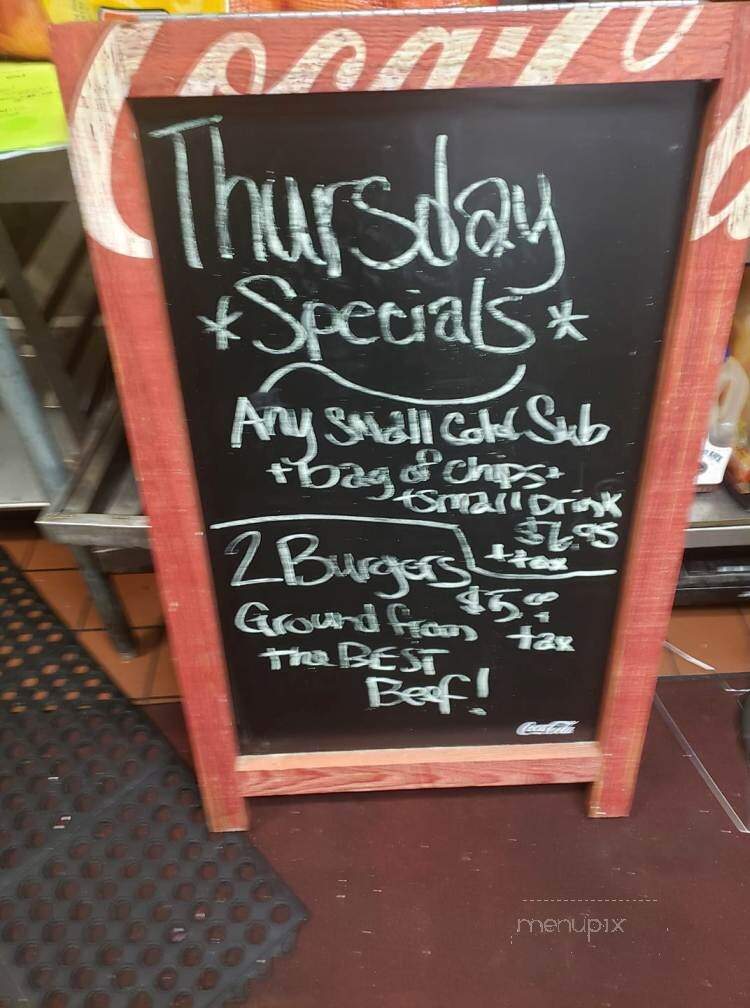 Coca-Co
Thursday
*Specials*
Any Small Cold Sub
+ bag of chips +
+ small Drink
$6.95
+ tax
2 Burgers
$5.00
+ tax
Ground from
the BEST
Beef!
Coca-Cola
menupix